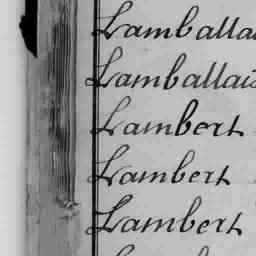 Lamballa
Lamballais
Lambert
Lambert
Lambert